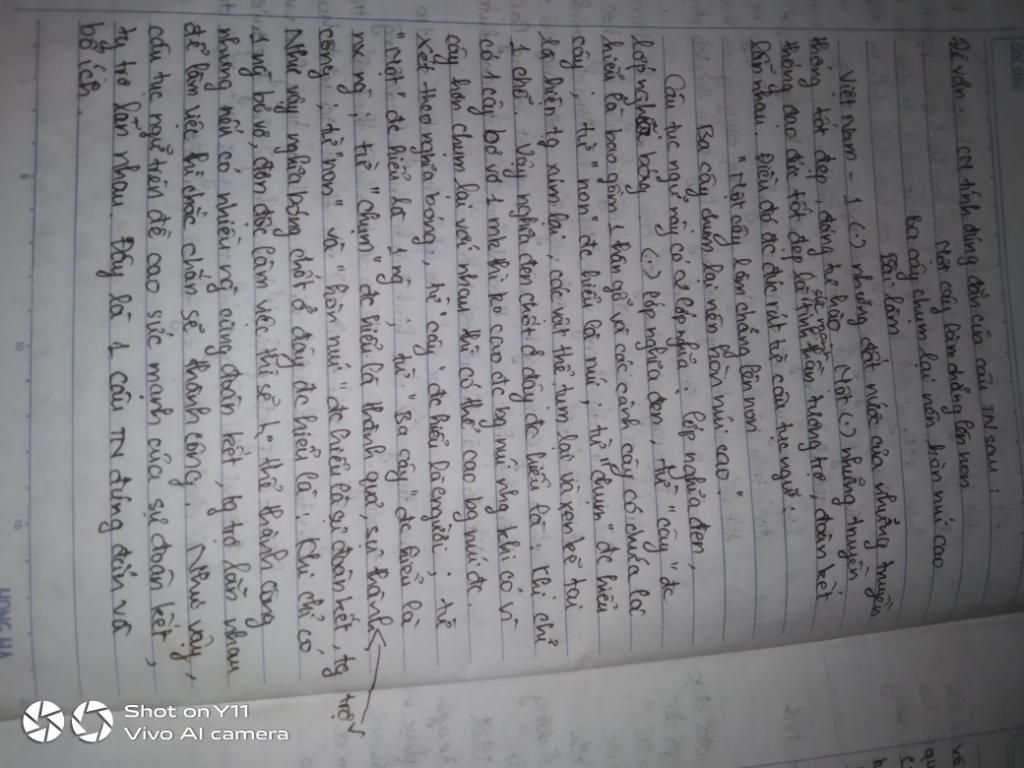 Đề văn: CM tính đúng đắn của câu TN sau:
Một cây làm chẳng lên non
Ba cây chụm lại nên hòn núi cao
Bài làm
Việt Nam - 1 (.) những đất nước của những truyền
thống tốt đẹp, đáng tự hào. Một (.) những truyền
thống đạo đức tốt đẹp là tinh thần tương trợ, đoàn kết
lẫn nhau. Điều đó đc đúc rút từ câu tục ngữ:
"Một cây làm chẳng lên non
Ba cây chụm lại nên hòn núi cao"
Câu tục ngữ này có 2 lớp nghĩa: lớp nghĩa đen,
lớp nghĩa bóng. (.) lớp nghĩa đen, từ "cây" đc
hiểu là bao gồm 1 thân gỗ và các cành cây có chứa lá
cây, từ "non" đc hiểu là núi, từ "chụm" đc hiểu
là hiện tg túm lại, các vật thể tụm lại và xen kẽ tại
1 chỗ. Vậy nghĩa đen chốt ở đây đc hiểu là: Khi chỉ
có 1 cây bơ vơ 1 mk thì ko cao đc bg núi nhg khi có
cây hơn chụm lại với nhau thì có thể cao bg núi đc.
Xét theo nghĩa bóng, từ "cây" đc hiểu là con người, từ
"Một" đc hiểu là 1 ng, từ "Ba cây" đc hiểu là
ng, từ "chụm" đc hiểu là thành quả, sự thành
công, từ "non" và "hòn núi" đc hiểu là sự đoàn kết, tg trợ
Như vậy nghĩa bóng chốt ở đây đc hiểu là: Khi chỉ có
1 ng bơ vơ, đơn độc làm việc thì sẽ ko thể thành công
nhưng nếu có nhiều ng cùng đoàn kết, tg trợ lẫn nhau
để làm việc thì chắc chắn sẽ thành công. Như vậy,
câu tục ngữ trên đề cao sức mạnh của sự đoàn kết,
tg trợ lẫn nhau. Đây là 1 câu TN đúng đắn và
bổ ích.
HONG HA
Shot on Y11
Vivo AI camera